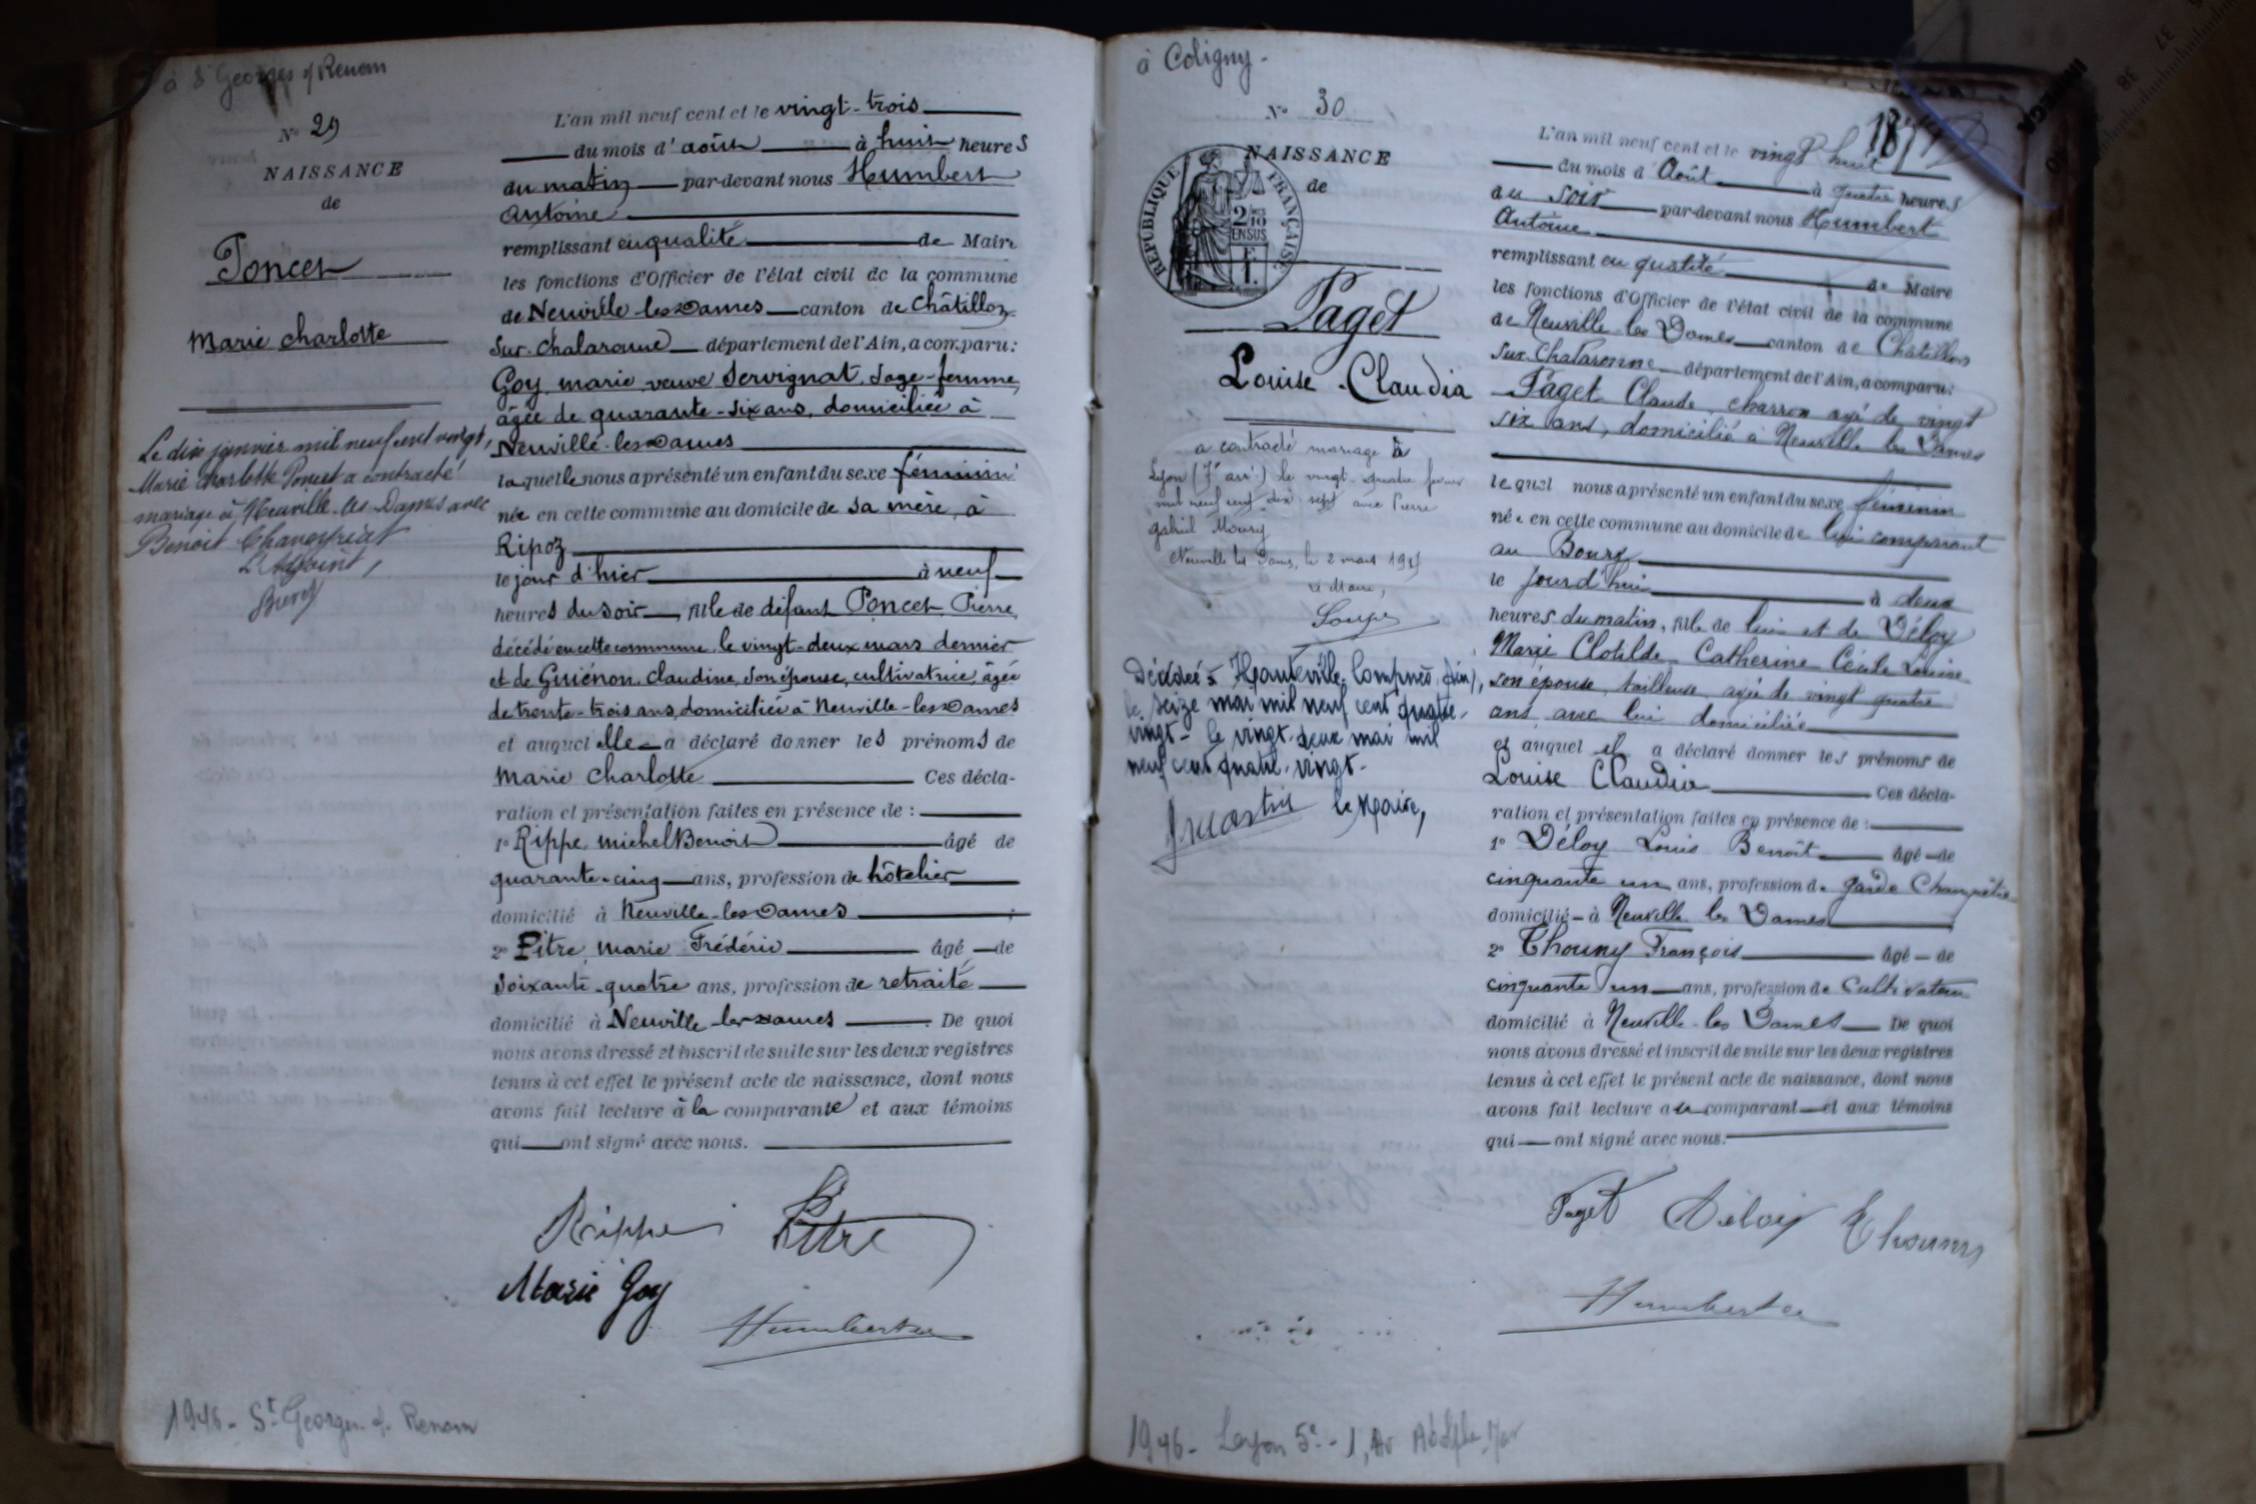 à St Georges s/ Renom
N° 29
NAISSANCE
de
Poncet
Marie Charlotte
Le dix janvier mil neuf cent vingt,
Marie Charlotte Poncet a contracté
mariage à Neuville-les-Dames avec
Benoit Chaveyriat
L'Adjoint,
L'an mil neuf cent et le vingt-trois
du mois d'août à huit heures
du matin par-devant nous Humbert
Antoine
remplissant en qualité de Maire
les fonctions d'Officier de l'état civil de la commune
de Neuville-les-Dames canton de Châtillon
sur-Chalaronne département de l'Ain, a comparu:
Goy, marie, veuve Servignat, sage-femme,
âgée de quarante-six ans, domiciliée à
Neuville-les-Dames
laquelle nous a présenté un enfant du sexe féminin
née en cette commune au domicile de sa mère, à
Ripoz
le jour d'hier à neuf
heures du soir, fille de défunt Poncet Pierre,
décédé en cette commune, le vingt-deux mars dernier
et de Guiénon, Claudine, son épouse, cultivatrice, âgée
de trente-trois ans, domiciliée à Neuville-les-Dames
et auquel elle a déclaré donner les prénoms de
Marie Charlotte Ces décla-
ration et présentation faites en présence de :
1° Rippe, Michel Benoit âgé de
quarante-cinq ans, profession de hôtelier
domicilié à Neuville-les-Dames ;
2° Pitre, Marie Frédéric âgé de
soixante-quatre ans, profession de retraité
domicilié à Neuville-les-Dames. De quoi
nous avons dressé et inscrit de suite sur les deux registres
tenus à cet effet le présent acte de naissance, dont nous
avons fait lecture à la comparante et aux témoins
qui ont signé avec nous.
Rippe Pitre
Marie Goy
Humbert
1946 - St Georges s/- Renom
à Coligny -
N° 30
NAISSANCE
de
RÉPUBLIQUE FRANÇAISE
2/10 EN SUS
Paget
Louise Claudia
a contracté mariage à
Lyon (7e arrt) le vingt-quatre février
mil neuf cent dix sept avec Pierre
Gabriel Moury
Neuville les Dames, le 2 mars 1917
Le Maire,
Décédée à Hauteville-Lompnes (Ain),
le seize mai mil neuf cent quatre-
vingt - le vingt-deux mai mil
neuf cent quatre-vingt-
le Maire,
L'an mil neuf cent et le vingt huit
du mois d'Août à quatre heures
du soir par-devant nous Humbert
Antoine
remplissant en qualité de Maire
les fonctions d'Officier de l'état civil de la commune
de Neuville-les Dames canton de Châtillon
sur Chalaronne département de l'Ain, a comparu:
Paget Claude, charron âgé de vingt
six ans, domicilié à Neuville les Dames
lequel nous a présenté un enfant du sexe féminin
née en cette commune au domicile de lui comparant
au Bourg
le jourd'hui à deux
heures du matin, fille de lui et de Déloy
Marie Clotilde Catherine Cécile Louise
son épouse, tailleuse, âgée de vingt quatre
ans avec lui domiciliée
et auquel il a déclaré donner les prénoms de
Louise Claudia Ces décla-
ration et présentation faites en présence de :
1° Déloy Louis Benoît âgé de
cinquante un ans, profession de garde Champêtre
domicilié à Neuville les Dames
2° Thouny François âgé de
cinquante un ans, profession de Cultivateur
domicilié à Neuville-les Dames De quoi
nous avons dressé et inscrit de suite sur les deux registres
tenus à cet effet le présent acte de naissance, dont nous
avons fait lecture au comparant et aux témoins
qui ont signé avec nous.
Paget Déloy Thouny
Humbert
1946 - Lyon 5e - 1, Av Adolphe